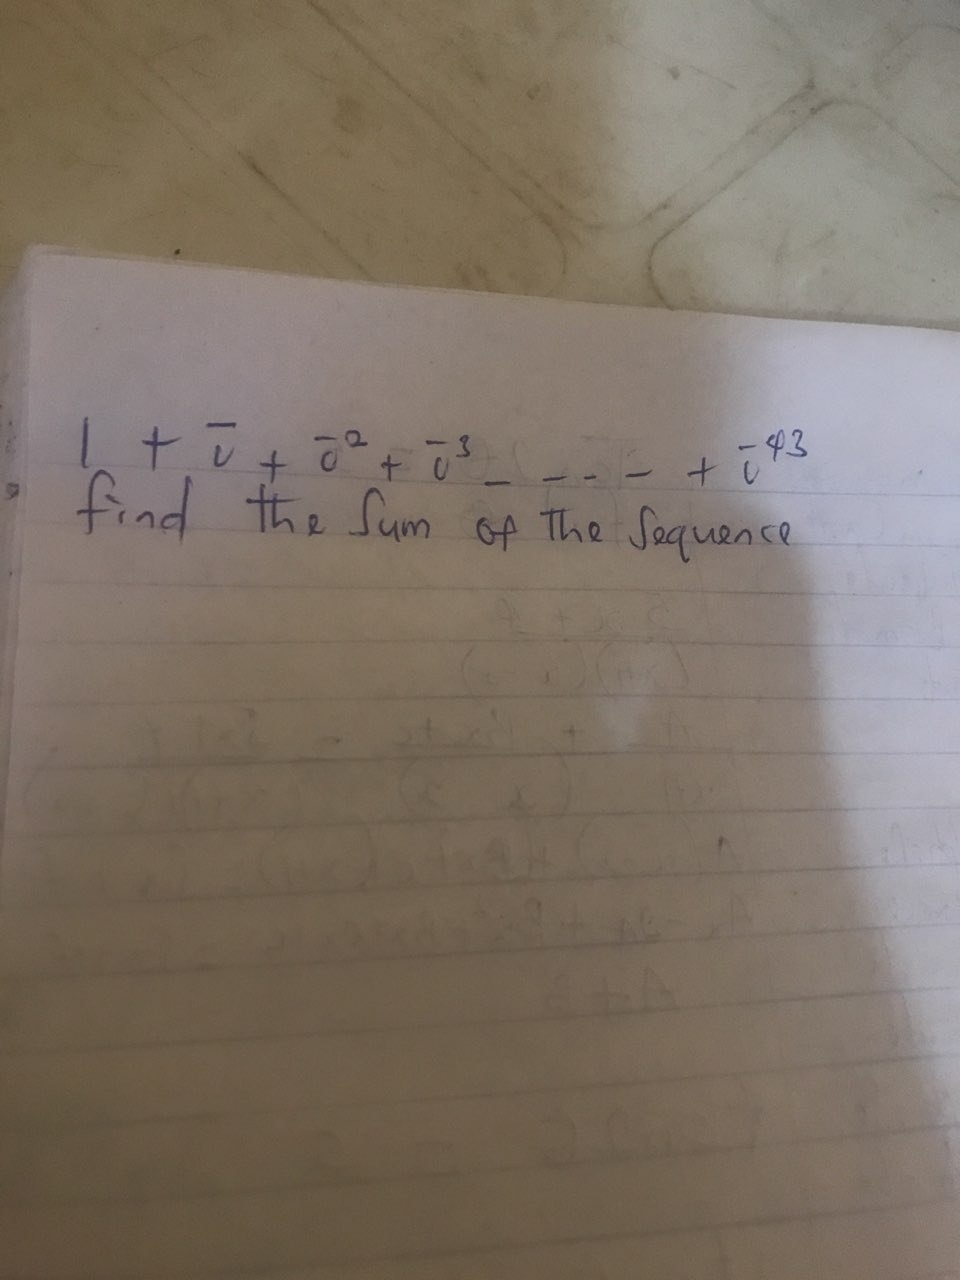 1 + ī + ī² + ī³ _ _ _ _ + ī⁴³
find the sum of the sequence